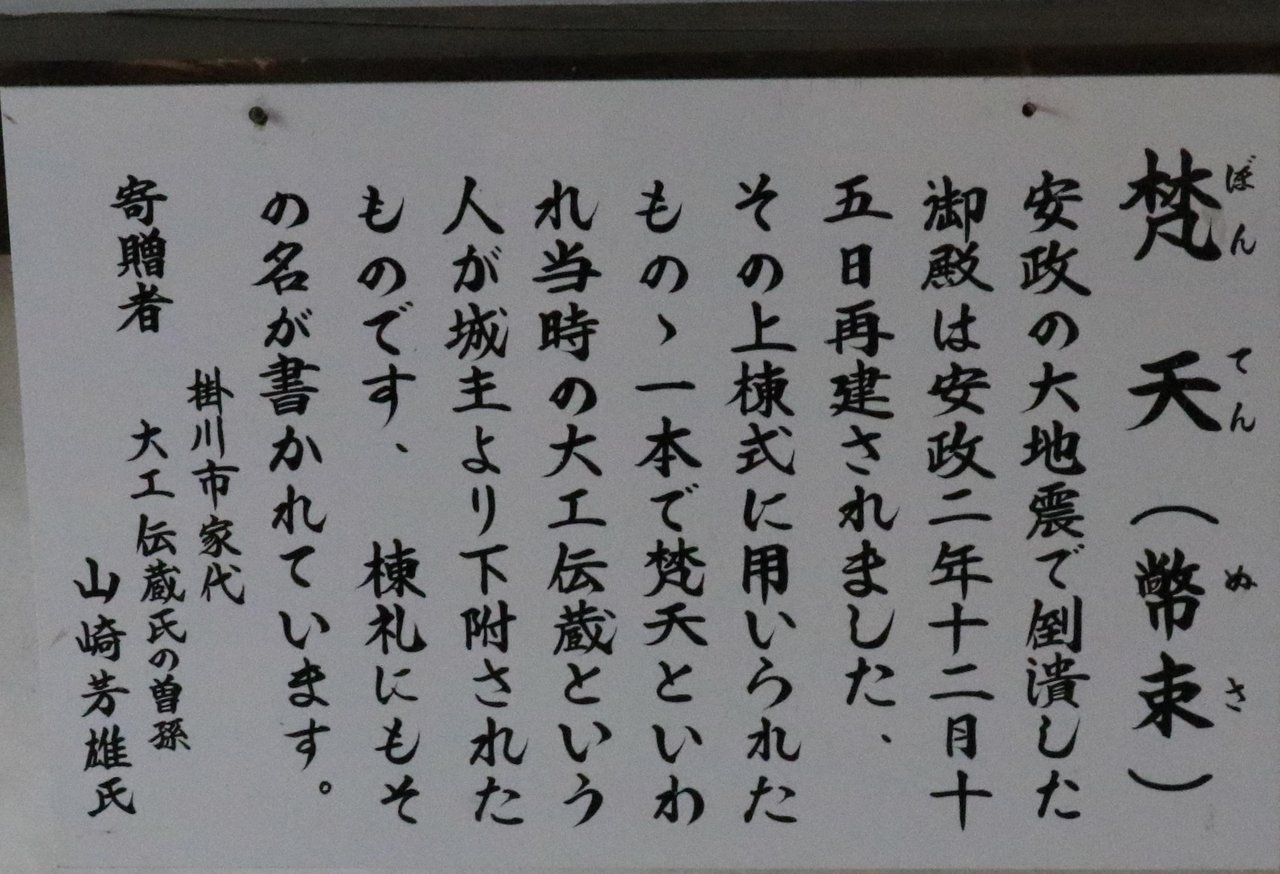 梵天(幣束)
ぼんてん ぬさ
安政の大地震で倒潰した
御殿は安政二年十二月十
五日再建されました、
その上棟式に用いられた
ものゝ一本で梵天といわ
れ当時の大工伝蔵という
人が城主より下附された
ものです、 棟札にもそ
の名が書かれています。
寄贈者
掛川市家代
大工伝蔵氏の曽孫
山崎芳雄氏